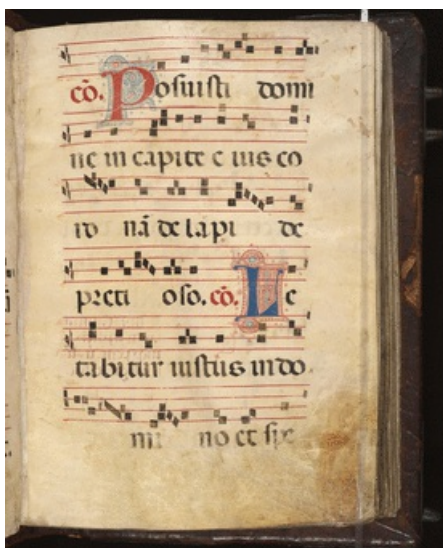 cō. Posuisti domi
ne in capite e ius co
ro nā de lapi de
preti oso. cō. Le
tabitur iustus in do
mi no et spe